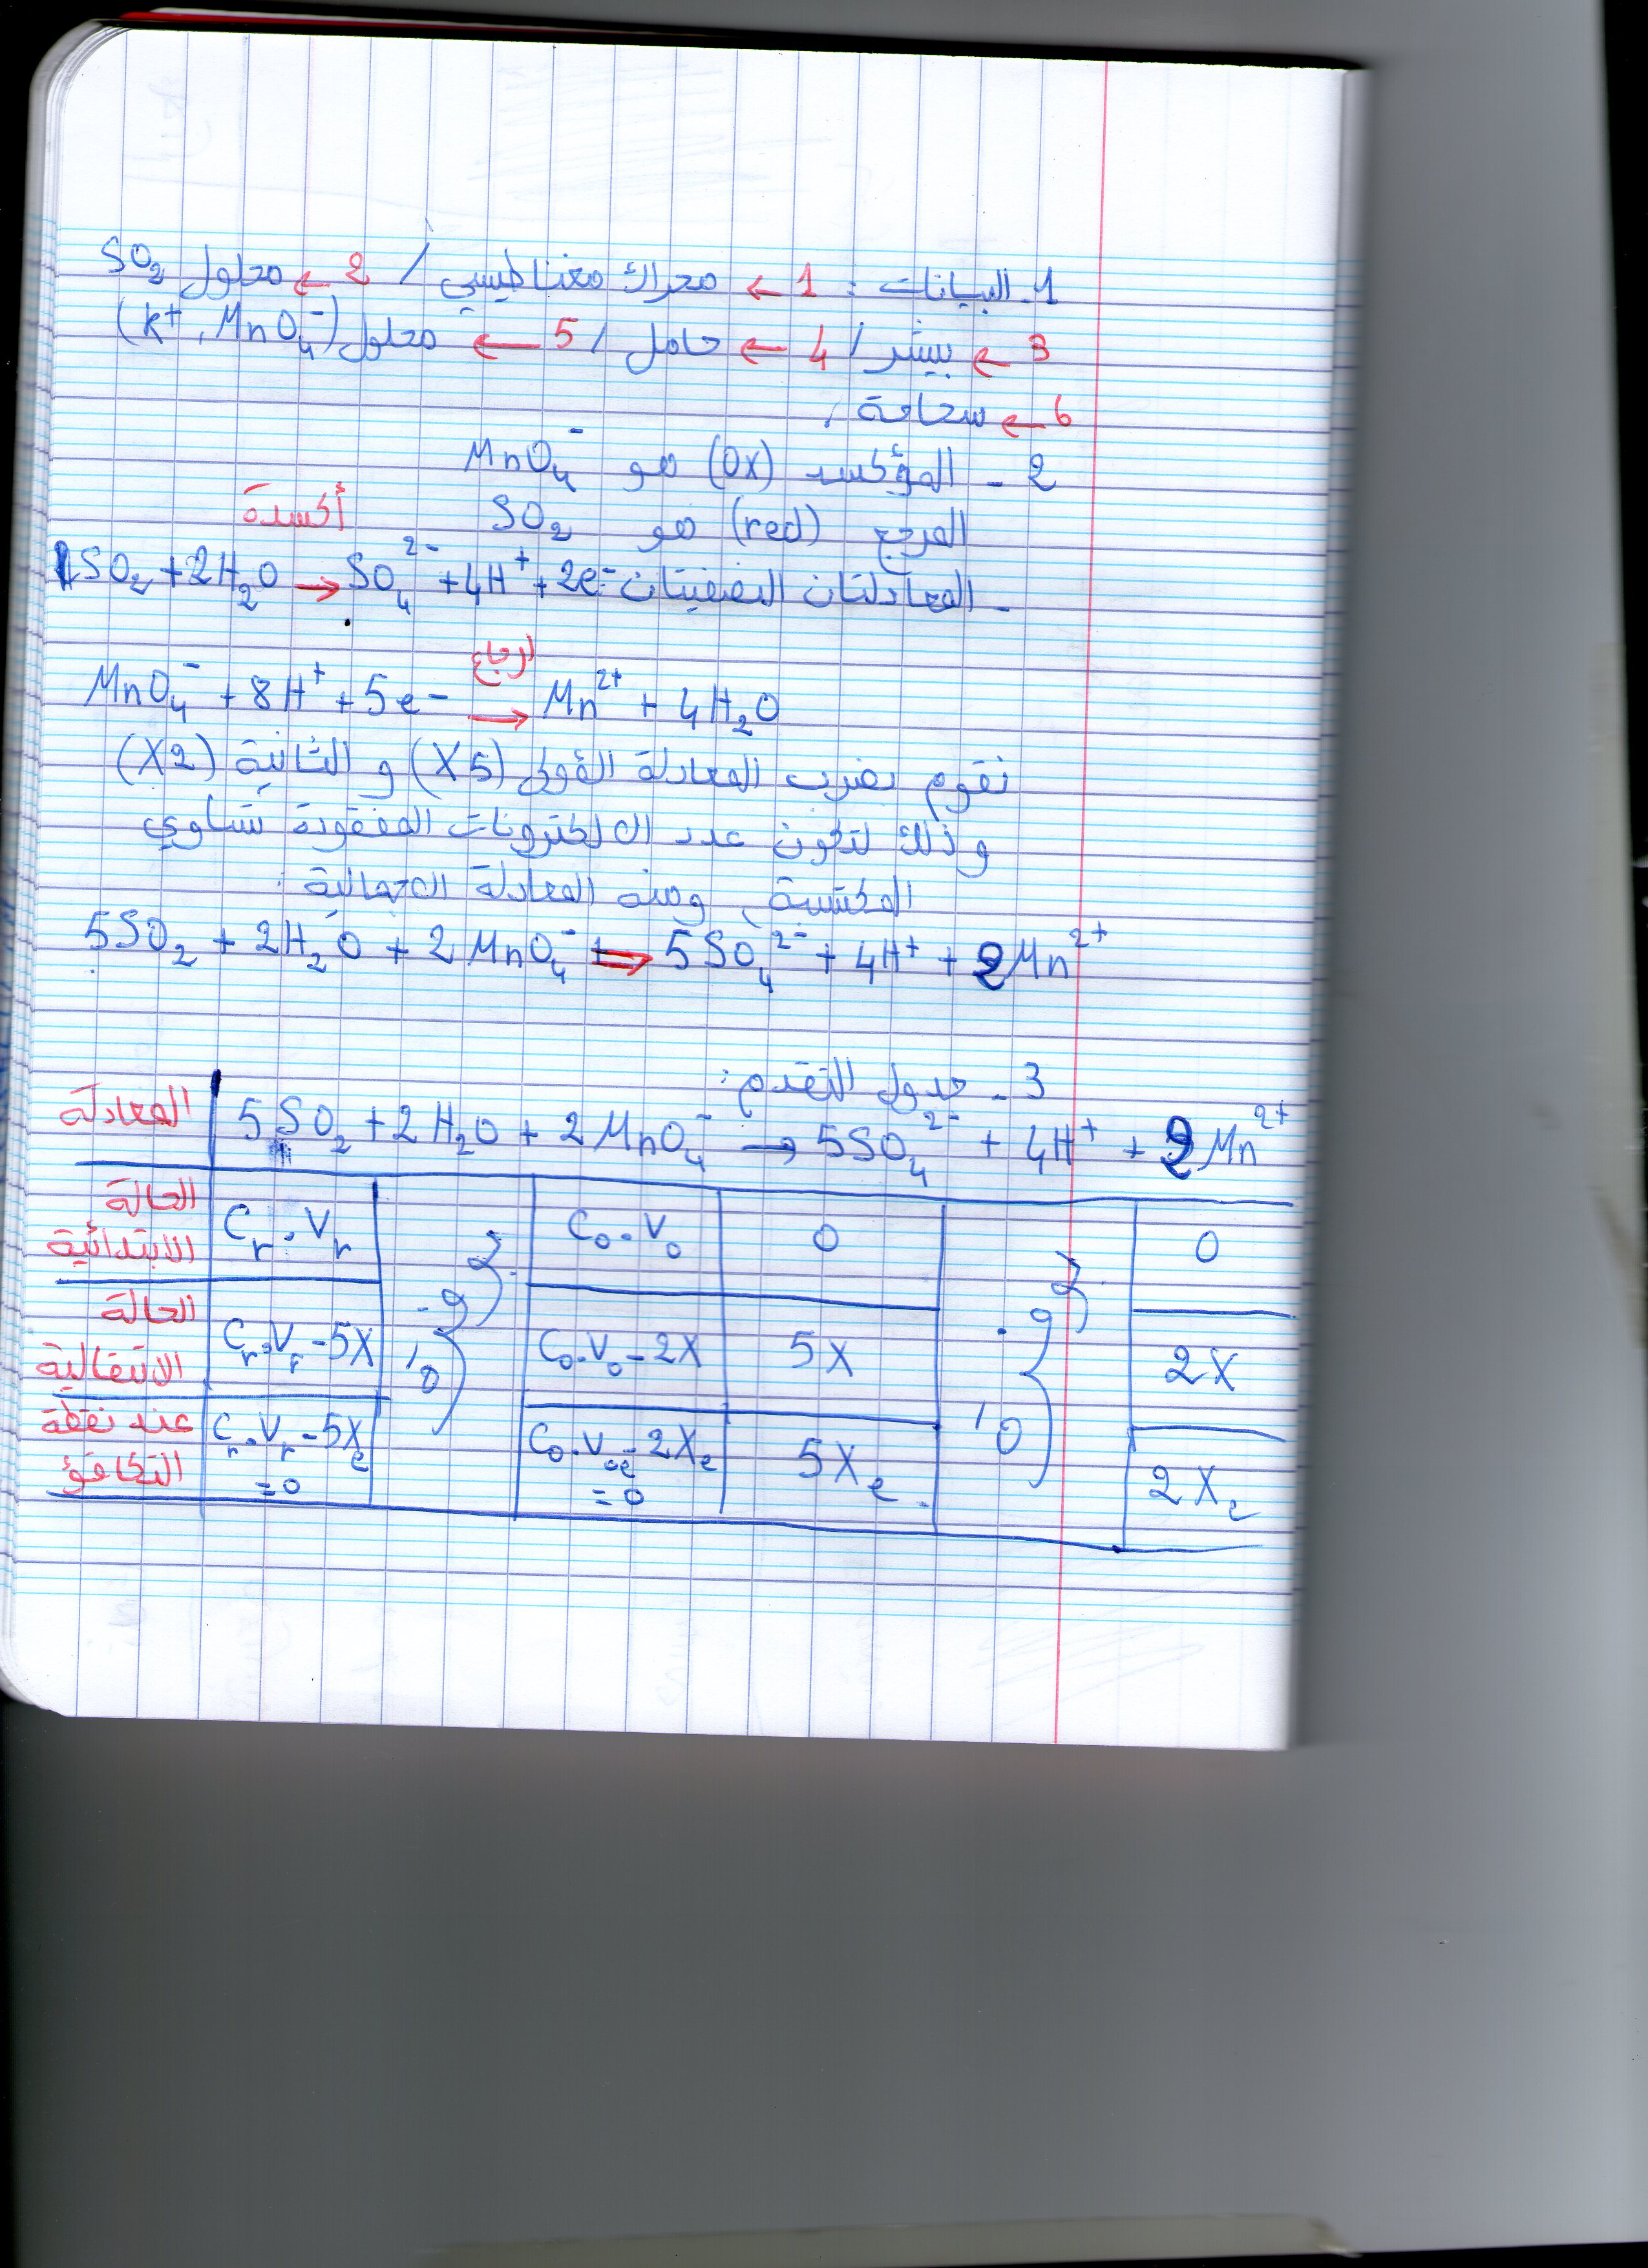 1- البيانات : 1 ← محراك مغناطيسي / 2 ← محلول SO₂
3 ← بيشر / 4 ← حامل / 5 ← محلول (K⁺, MnO₄⁻)
6 ← سحاحة
2 - المؤكسد (Ox) هو MnO₄⁻
المرجع (red) هو SO₂
أكسدة
- المعادلتان النصفيتان SO₂ + 2H₂O → SO₄²⁻ + 4H⁺ + 2e⁻
إرجاع
MnO₄⁻ + 8H⁺ + 5e⁻ → Mn²⁺ + 4H₂O
نقوم بضرب المعادلة الأولى (X5) و الثانية (X2)
وذلك لتكون عدد الالكترونات المفقودة تساوي
المكتسبة, ومنه المعادلة الاجمالية :
5SO₂ + 2H₂O + 2MnO₄⁻ ⇒ 5SO₄²⁻ + 4H⁺ + 2Mn²⁺
3 - جدول التقدم :
المعادلة 5SO₂ + 2H₂O + 2MnO₄⁻ → 5SO₄²⁻ + 4H⁺ + 2Mn²⁺
الحالة الابتدائية Cr.Vr C₀.V₀ 0 0
الحالة الانتقالية Cr.Vr - 5X C₀.V₀ - 2X 5X 2X
عند نقطة التكافؤ Cr.Vr - 5Xe = 0 C₀.V₀e - 2Xe = 0 5Xe 2Xe